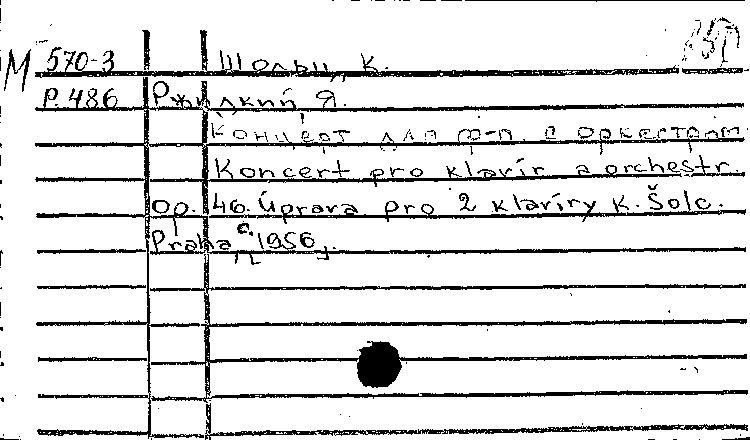 M 570-3 Шольц, К.
Р. 486 Ржидкий, Я.
Концерт для ф-п. с оркестром
Koncert pro klavír a orchestr.
Op. 46. Úprava pro 2 klavíry K. Šolc.
Praha, c. [1956].